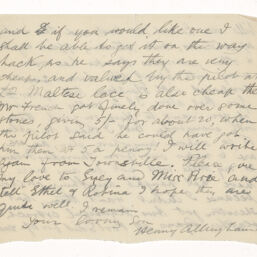 and & if you would like one I
shall be able to get it on the way
back, as he says they are very
cheap, and valued by the pilot at
£2 Maltese lace is also cheap the
Mr French got finely done over some
stones, given 5/- for about 20, when
this pilot said he could have got
him them at 5 a penny! I will write
again from Townsville. Please give
my love to and Mrs and
tell Ethel & I hope they are
quite well I remain
Your loving Son
Henry Allingham